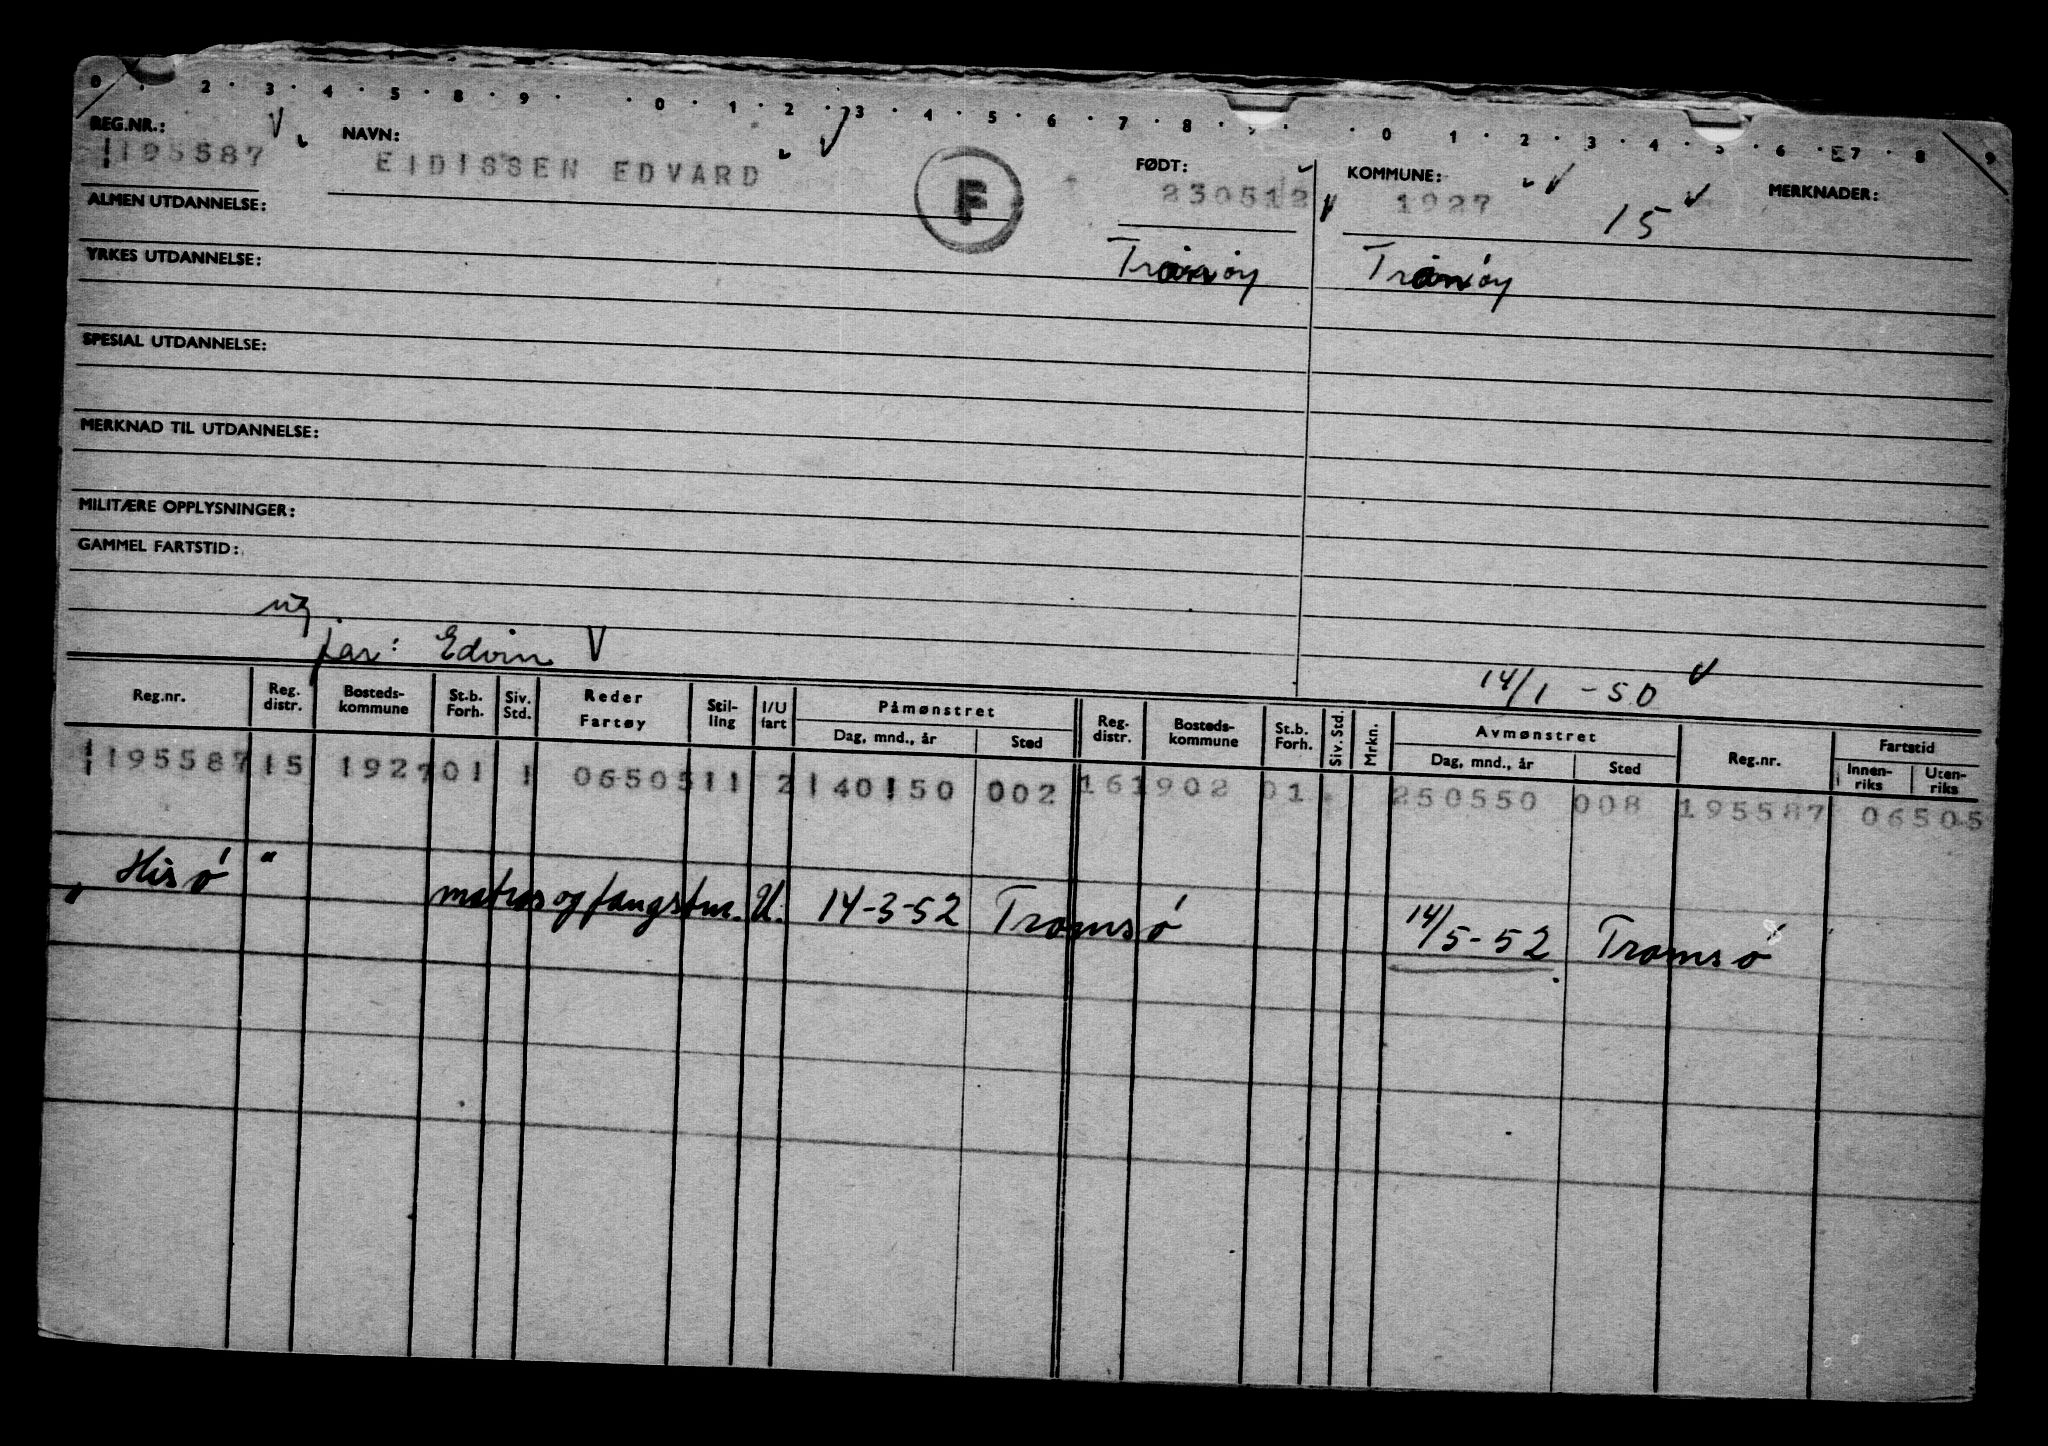 0 . 2 . 3 . 4 . 5 . 8 . 9 . . 0 . 1 . 2 . 3 . 4 . 5 . 6 . 7 . 8 . 9 . . 0 . 1 . 2 . 3 . 4 . 5 . 6 . 7 . 8 . 9
REG.NR.: NAVN: FØDT: KOMMUNE: MERKNADER:
195587 EIDISSEN EDVARD F 230512 1927 15
ALMEN UTDANNELSE:
Tranöy Tranöy
YRKES UTDANNELSE:
SPESIAL UTDANNELSE:
MERKNAD TIL UTDANNELSE:
MILITÆRE OPPLYSNINGER:
GAMMEL FARTSTID:
ug
far: Edvin
14/1 - 50
Reg.nr. Reg. distr. Bosteds-kommune St.b. Forh. Siv. Std. Reder Fartøy Stil-ling I/U fart Påmønstret Dag, mnd., år Sted Reg. distr. Bosteds-kommune St.b. Forh. Siv. Std. Mrkn. Avmønstret Dag, mnd., år Sted Reg.nr. Fartstid Innen-riks Uten-riks
195587 15 1927 01 1 0650511 2 140150 002 161902 01 250550 008 195587 06505
„Hisö" matros og fangstm. U. 14-3-52 Tromsö 14/5-52 Tromsö